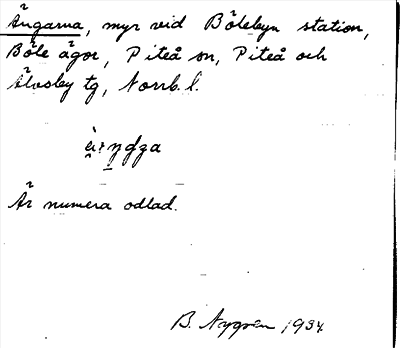 Ängarna, myr vid Bölebyn station,
Böle ägor, Piteå sn, Piteå och
Älvsby tg, Norrb. l.
Är numera odlad.
B. Nygren 1934